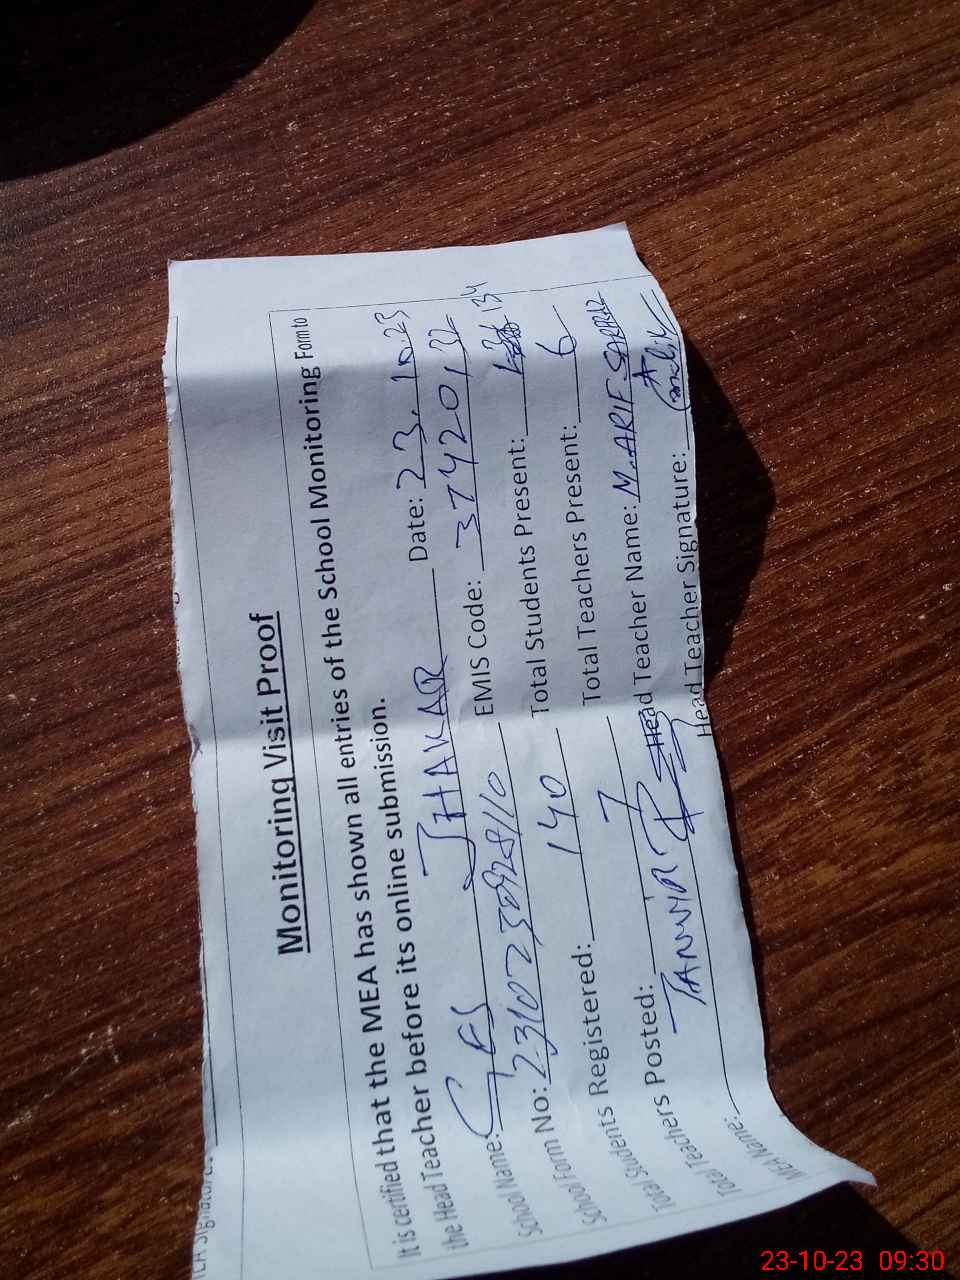 Monitoring Visit Proof
It is certified that the MEA has shown all entries of the School Monitoring Form to
the Head Teacher before its online submission.
School Name: GES JHAKAR Date: 23.10.23
School Form No: EMIS Code: 37420132
Total Students Registered: 140 Total Students Present: 134
Total Teachers Posted: 7 Total Teachers Present: 6
MEA Name: TANVIR Head Teacher Name: M. ARIF SARFRAZ
Head Teacher Signature:
23-10-23 09:30